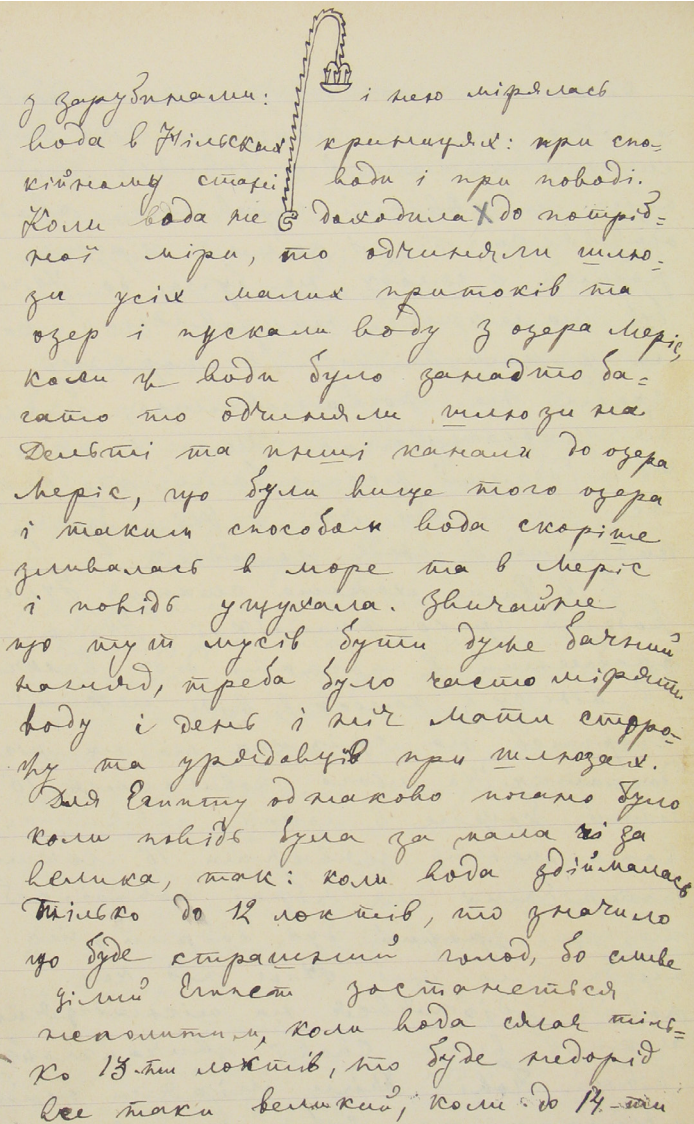 з зарубинами: і нею мірялась
вода в Нільских криницях: при спо=
кійному стані води і при поводі.
Коли вода не доходила до потріб=
ної міри, то одчиняли шлю=
зи усіх малих притоків та
озер і пускали воду з озера Меріс,
коли ж води було занадто ба=
гато то одчиняли шлюзи на
Дельті та инші канали до озера
Меріс, що були вище того озера
і таким способом вода скоріше
зливалась в море та в Меріс
і повідь ущухала. Звичайне
що тут мусів бути дуже бачний
нагляд, треба було часто міряти
воду і день і ніч мати сторо=
жу та урядовців при шлюзах.
Для Египту однаково погано було
коли повідь була за мала чі за
велика, так: коли вода здіймалась
тілько до 12 локтів, то значило
що буде страшний голод, бо мливе
цілий Египет зостанеться
неполитим, коли вода сягая тіль=
ко 13-ти локтів, то буде недорід
все таки великий, коли до 14-ти